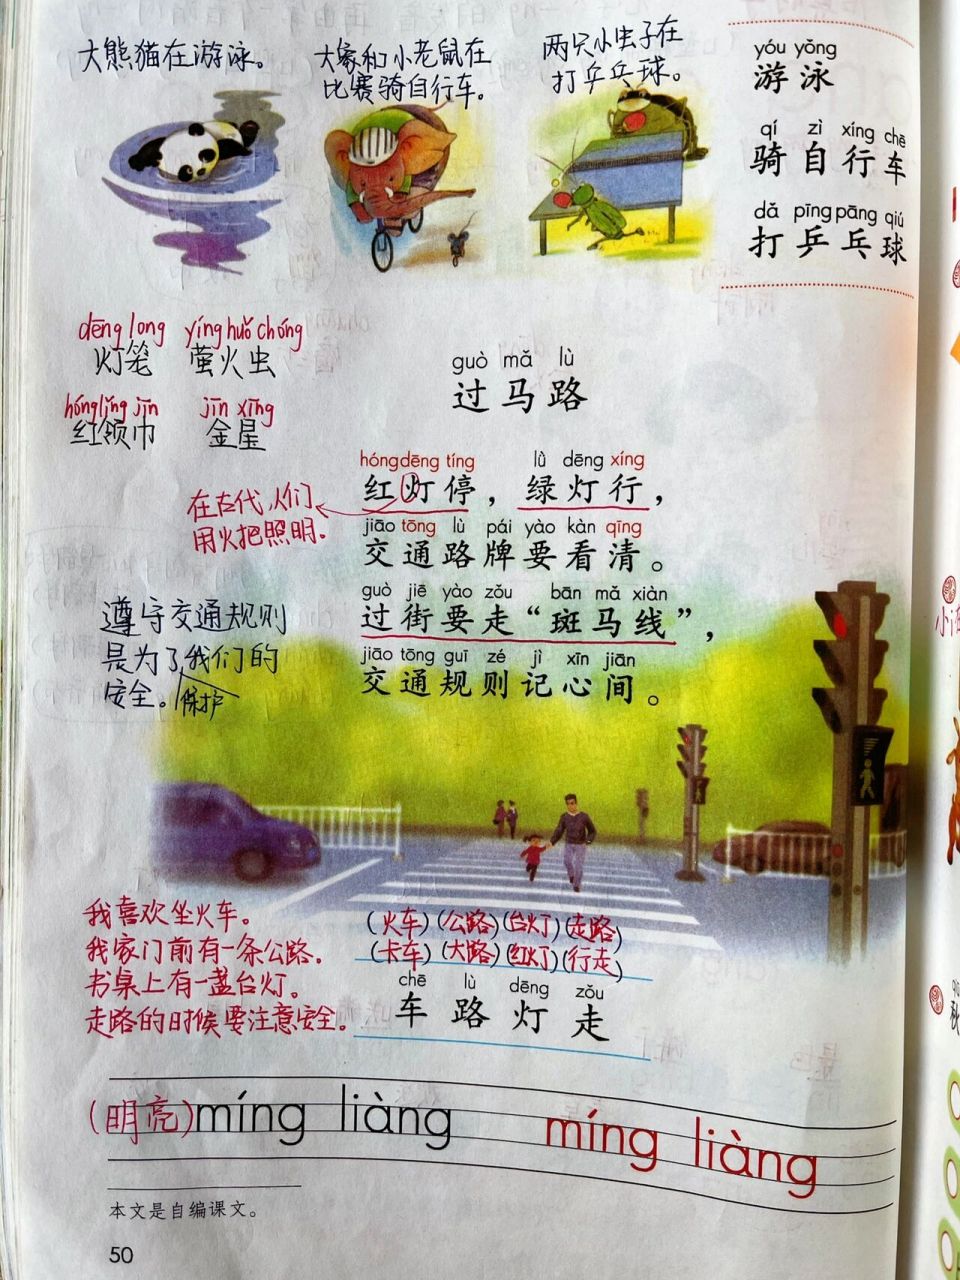 大熊猫在游泳。
大象和小老鼠在
比赛骑自行车。
两只小虫子在
打乒乓球。
yóu yǒng
游泳
qí zì xíng chē
骑自行车
dǎ pīng pāng qiú
打乒乓球
dēng long yíng huǒ chóng
灯笼 萤火虫
hóng lǐng jīn jīn xīng
红领巾 金星
guò mǎ lù
过马路
hóng dēng tíng lǜ dēng xíng
红灯停，绿灯行，
在古代，人们
用火把照明。
jiāo tōng lù pái yào kàn qīng
交通路牌要看清。
guò jiē yào zǒu bān mǎ xiàn
过街要走“斑马线”，
jiāo tōng guī zé jì xīn jiān
交通规则记心间。
遵守交通规则
是为了我们的
安全。保护
我喜欢坐火车。
我家门前有一条公路。
书桌上有一盏台灯。
走路的时候要注意安全。
（火车）（公路）（台灯）（走路）
（卡车）（大路）（红灯）（行走）
chē lù dēng zǒu
车 路 灯 走
（明亮）míng liàng míng liàng
本文是自编课文。
50